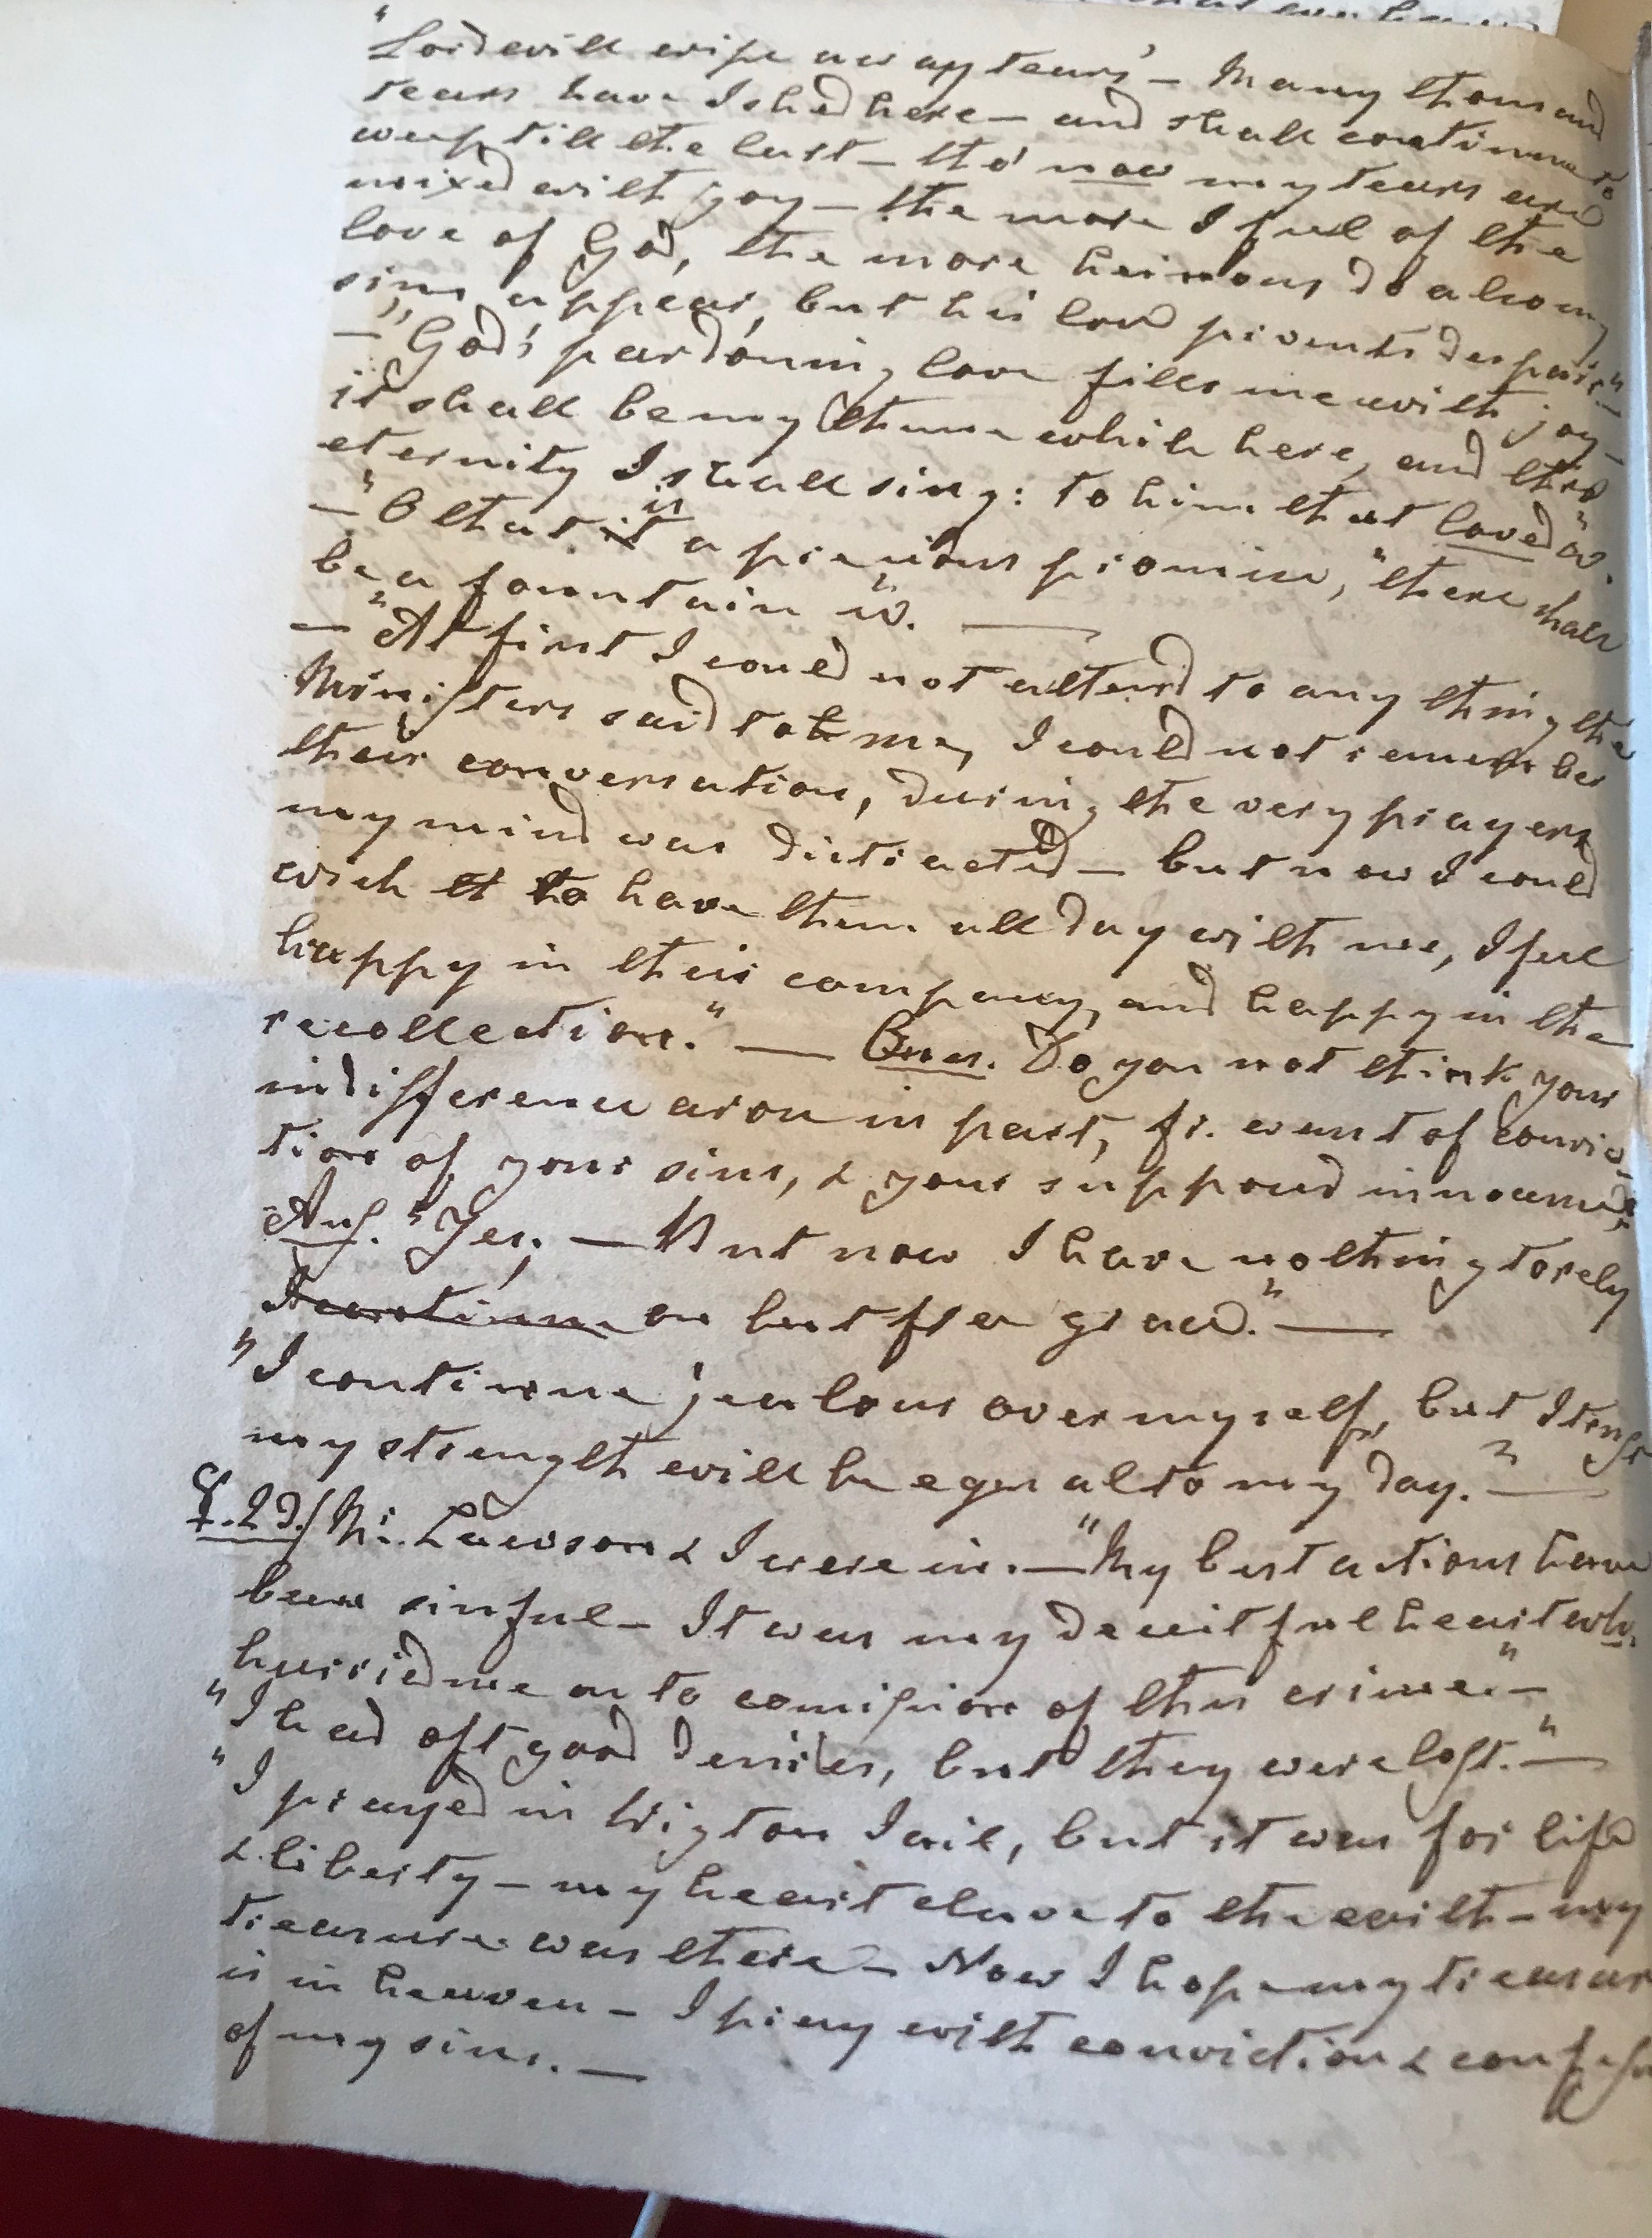 "Lord will wipe away tears' – Many thousand
tears have I shed here – and shall continue to
weep till the last – tho' now my tears are
mixed with joy – the more I feel of the
love of God, the more heinous do also my
sins appear, but his love prevents despair."–
– "God's pardoning love fills me with joy –
it shall be my theme while here, and thro'
eternity I shall sing: to him that loved &c."
– "O that it is a precious promise, "there shall
be a fountain &c." ——
– "At first I could not attend to any thing the
Ministers said to me, I could not remember
their conversation, during the very prayers
my mind was distracted – but now I could
wish to have them all day with me, I feel
happy in their company, and happy in the
recollection." —— Ques. Do you not think your
indifference arose in part, fr. want of convic-
tion of your sins, & your supposed innocence,
Ans. "Yes, — But now I have nothing to rely
on but free grace." ——
"I continue jealous over myself, but I trust
my strength will be equal to my day." ——
♀.23./ Mr. Lawson & I were in. — "My best actions have
been sinful – It was my deceitful heart wh.
hurried me on to comission of this crime." –
"I had oft good desires, but they were lost." —
"I prayed in Wigton Jail, but it was for life
& liberty – my heart clave to the earth – my
treasure was there – Now I hope my treasure
is in heaven – I pray with conviction &
of my sins. —